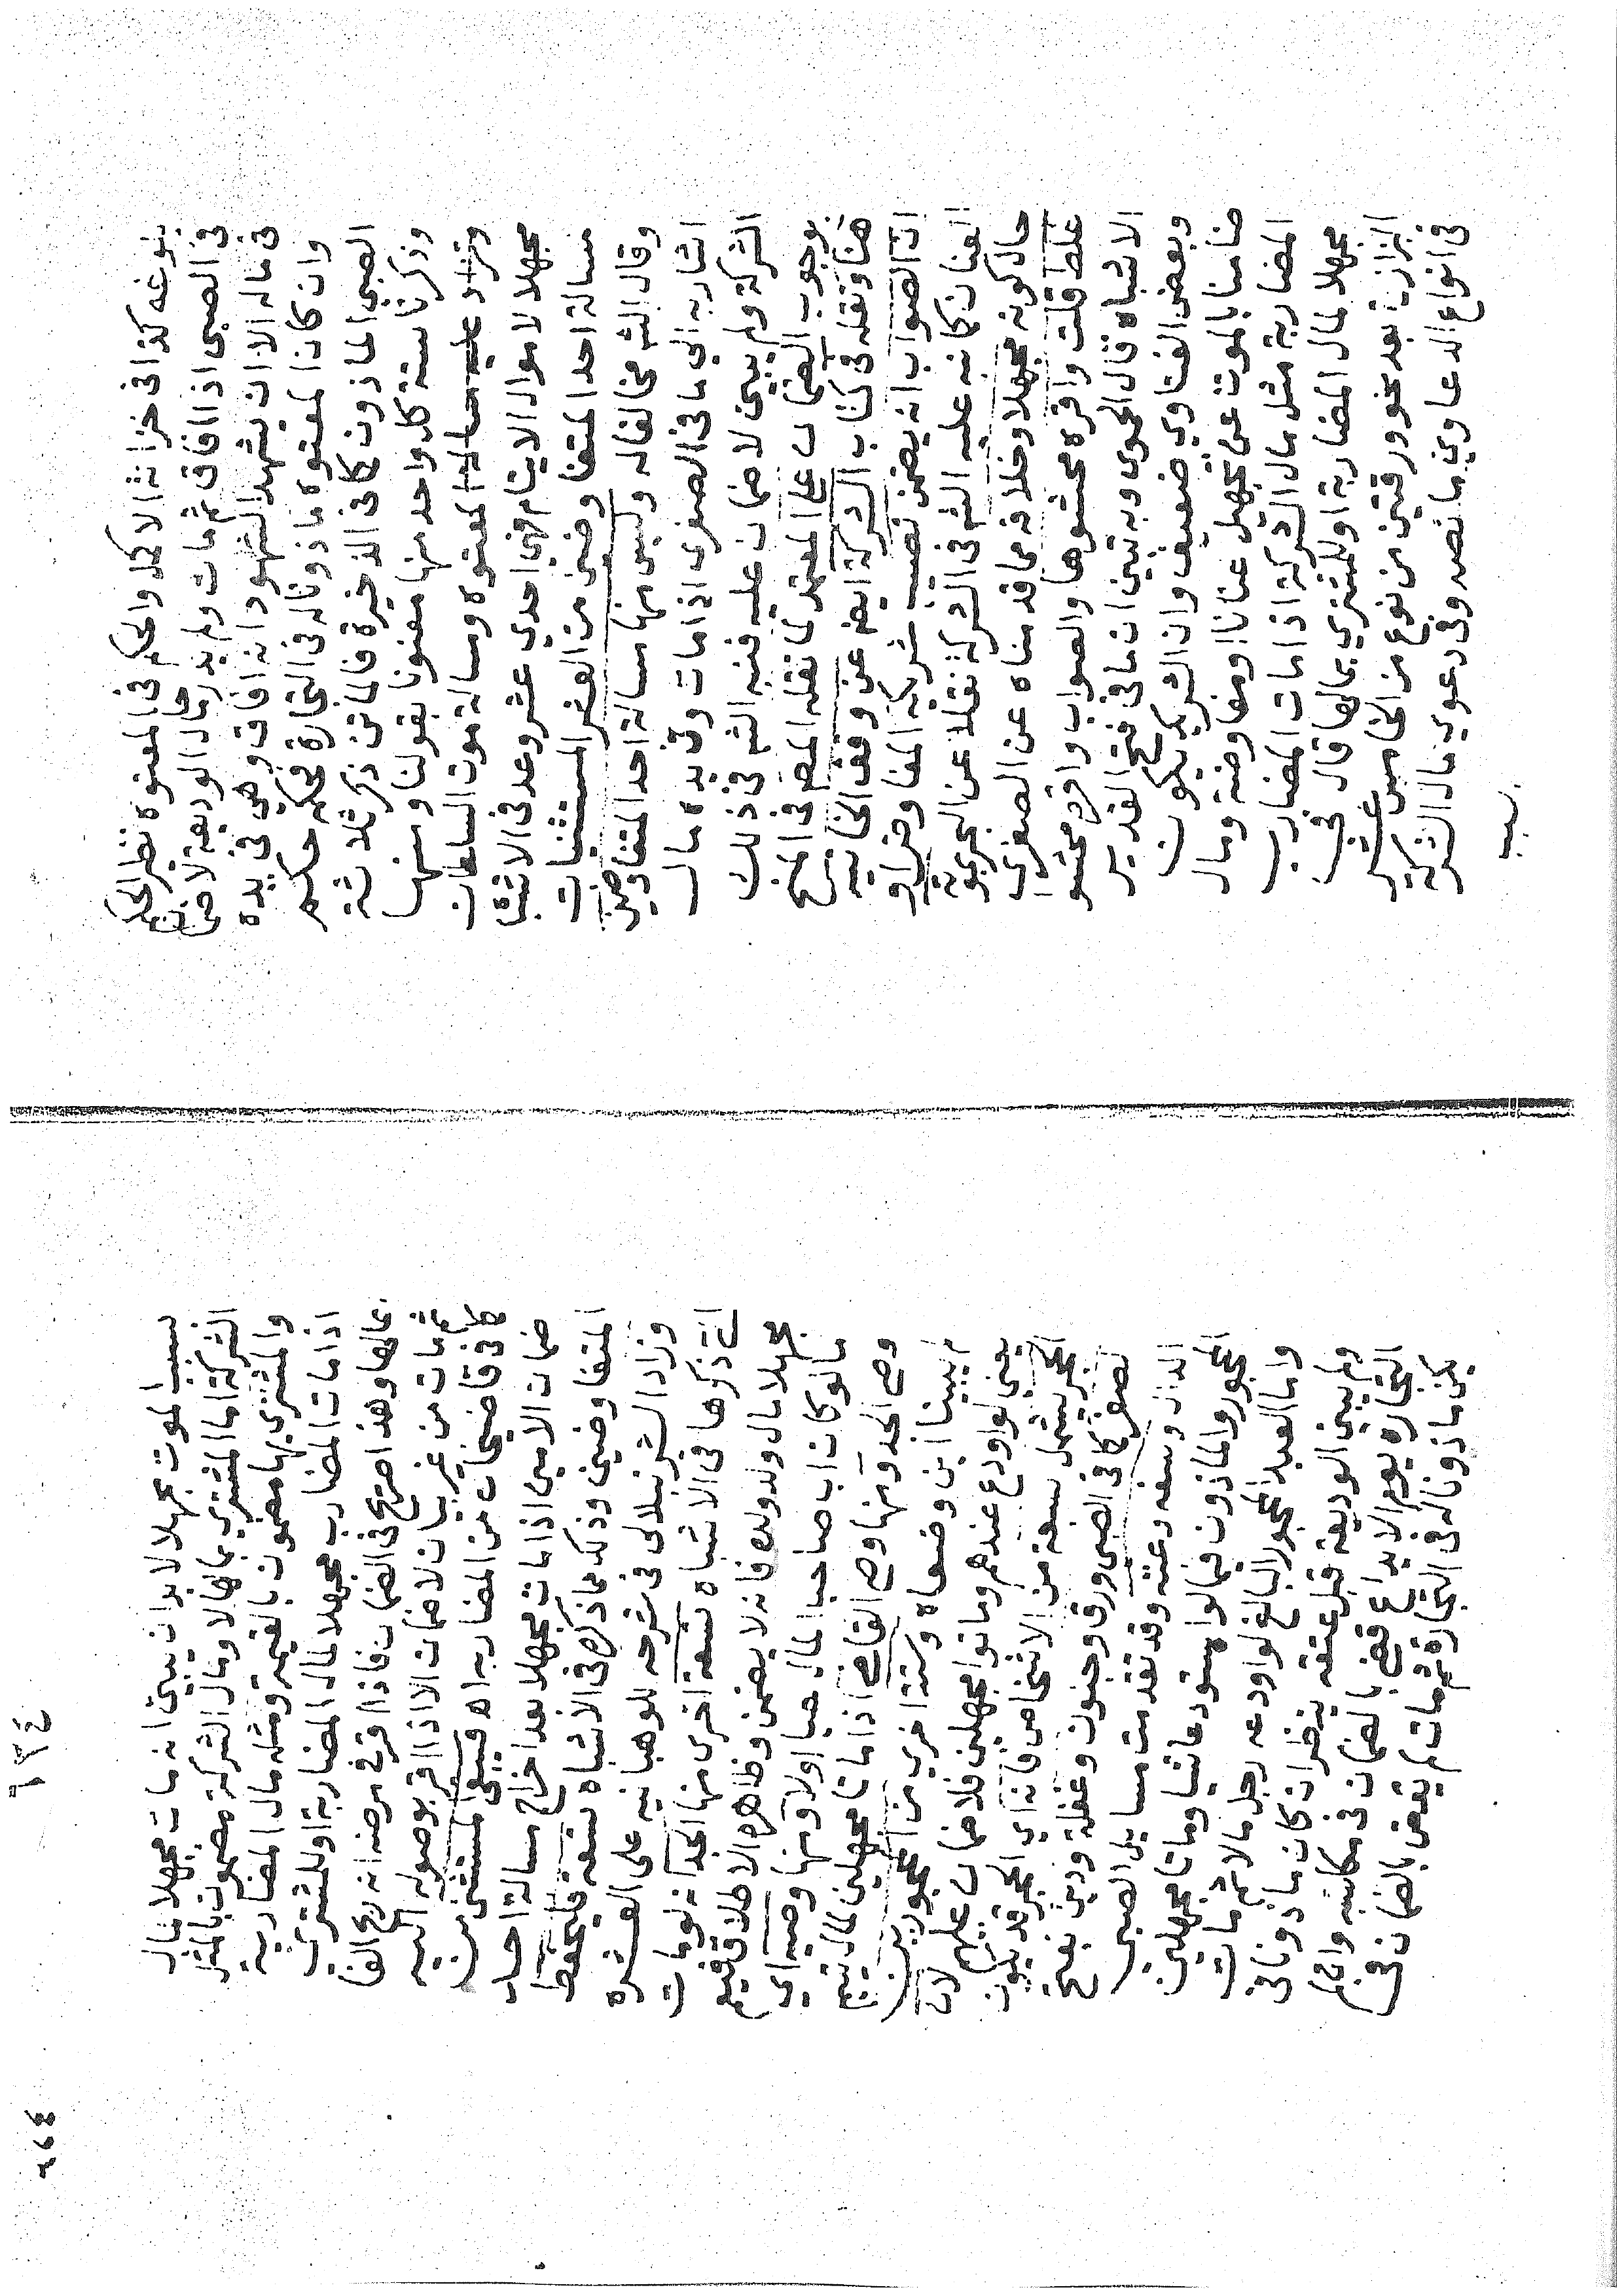 بلوغه كذا في خزانة الاكمل والحكم في المعتوه نظير الحكم
في الصبي اذا افاق ثم مات ولم يدر حال الوديعة لا ضمان
في ماله الا ان يشهد الشهود انه افاق وهي في يده
وان كان المعتوه ماذونا له في التجارة فحكمه حكم
الصبي الماذون كما في الذخيرة فالماتن ذكر ثلاثة
وذكرنا ستة كل واحد منها مقرونا بقولنا ومنها
وتزاد عليه مسالة المعتوه ومسالة موت السلطان
مجهلا لاموال الايتام فهي احدي عشر وعد في الاشباه
مسالة احد المتفاوضين من العشر المستثنيات
وقال الشم مخالفا له وليس منها مسالة احد المتفاوضين
اشار به الي ما في الصغرى اذا مات وفي يده مال
الشركة ولم يبين لا ضمان عليه فنبه الشم في ذلك
بوجوب الضمان علي المعتمد لما نقله المصم في المنح
هنا ونقله في كتاب الشركة ايضم عن وقف الخانية
ان الصواب انه يضمن نصيب شريكه المفاوض او
العنان كما نبه عليه الشم في الشركة نقلا عن البحر بموته
حال كونه مجهلا وخلافه مما قدمناه عن الصغرى
غلط قلت واقره محشوها والصواب واقره محشو
الاشباه قال الحموي وبه تبين ان ما في فتح القدير
وبعض الفتاوي ضعيف وان الشريك يكون
ضامنا بالموت عن تجهيل عنانا او مفاوضة ومال
المضاربة مثل مال الشركة اذا مات المضارب
مجهلا لمال المضاربة او للمشتري بمالها قال في
البزازية بعد نحو ورقتين من نوع من الخامس عشر
في انواع الدعاوي ما نصه وفي دعوي مال الشركة
بسبب
بسبب الموت مجهلا لا بد ان يبين انه مات مجهلا لمال
الشركة اما المشتري بمالها لا ومال الشركة مضمون بالمثل
والمشتري بها مضمون بالقيمة ومثله مال المضاربة
اذا مات المضارب مجهلا لمال المضاربة او للمشتري
بمالها وهذا صريح في الضمان فاذا اقر في مرضه انه ربح الفا
ثم مات من غير بيان لا ضمان الا اذا اقر بوصوله اليه
كما في قاضيخان من المضاربة اه فيبقى المستثنى من
ضمان الامين اذا مات مجهلا بعد اخراج مسالة احد
المتفاوضين وذلك مما ذكره في الاشباه تسعة فليحفظ
وزاد الشرنبلالي في شرحه للوهبانيه على العشره
التي ذكرها في الاشباه تسعة اخرى منها الجد انه لو مات
مجهلا مال ولد ولده فانه لا يضمن وظاهره الاطلاق فيعم
ما لو كان اب صاحب المال حيا اولا ومنها وصيه اي
وصي الجد ومنها وصي القاضي اذا ماتا مجهلين لمال يتيم
لم يبينا اين وضعاه وستة اخري من المحجورين
يعني لو اودع عندهم وماتوا مجهلين فلا ضمان عليهم لان
الحجر يشمل سبعة من الاشخاص فانه اي الحجر قد يكون
لصغر كما في الصبي ورق وجنون وغفلة ودين بفتح
الدال وسفه وعته وقد تقدمت مسايل الصبي
المحجور والماذون فيما لو استودعا شيا وماتا مجهلين
واما العبد المحجور البالغ لو اودعه رجل مالا ثم مات
ولم يبين الوديعة قبل عتقه ينظر ان كان ماذونا في
التجاره يوم الايداع قضي بالضمان في مكاسبه وان لم
يكن ماذونا له في التجارة ثم مات لم يقض بالضمان في
١٣٤
٩٦٤